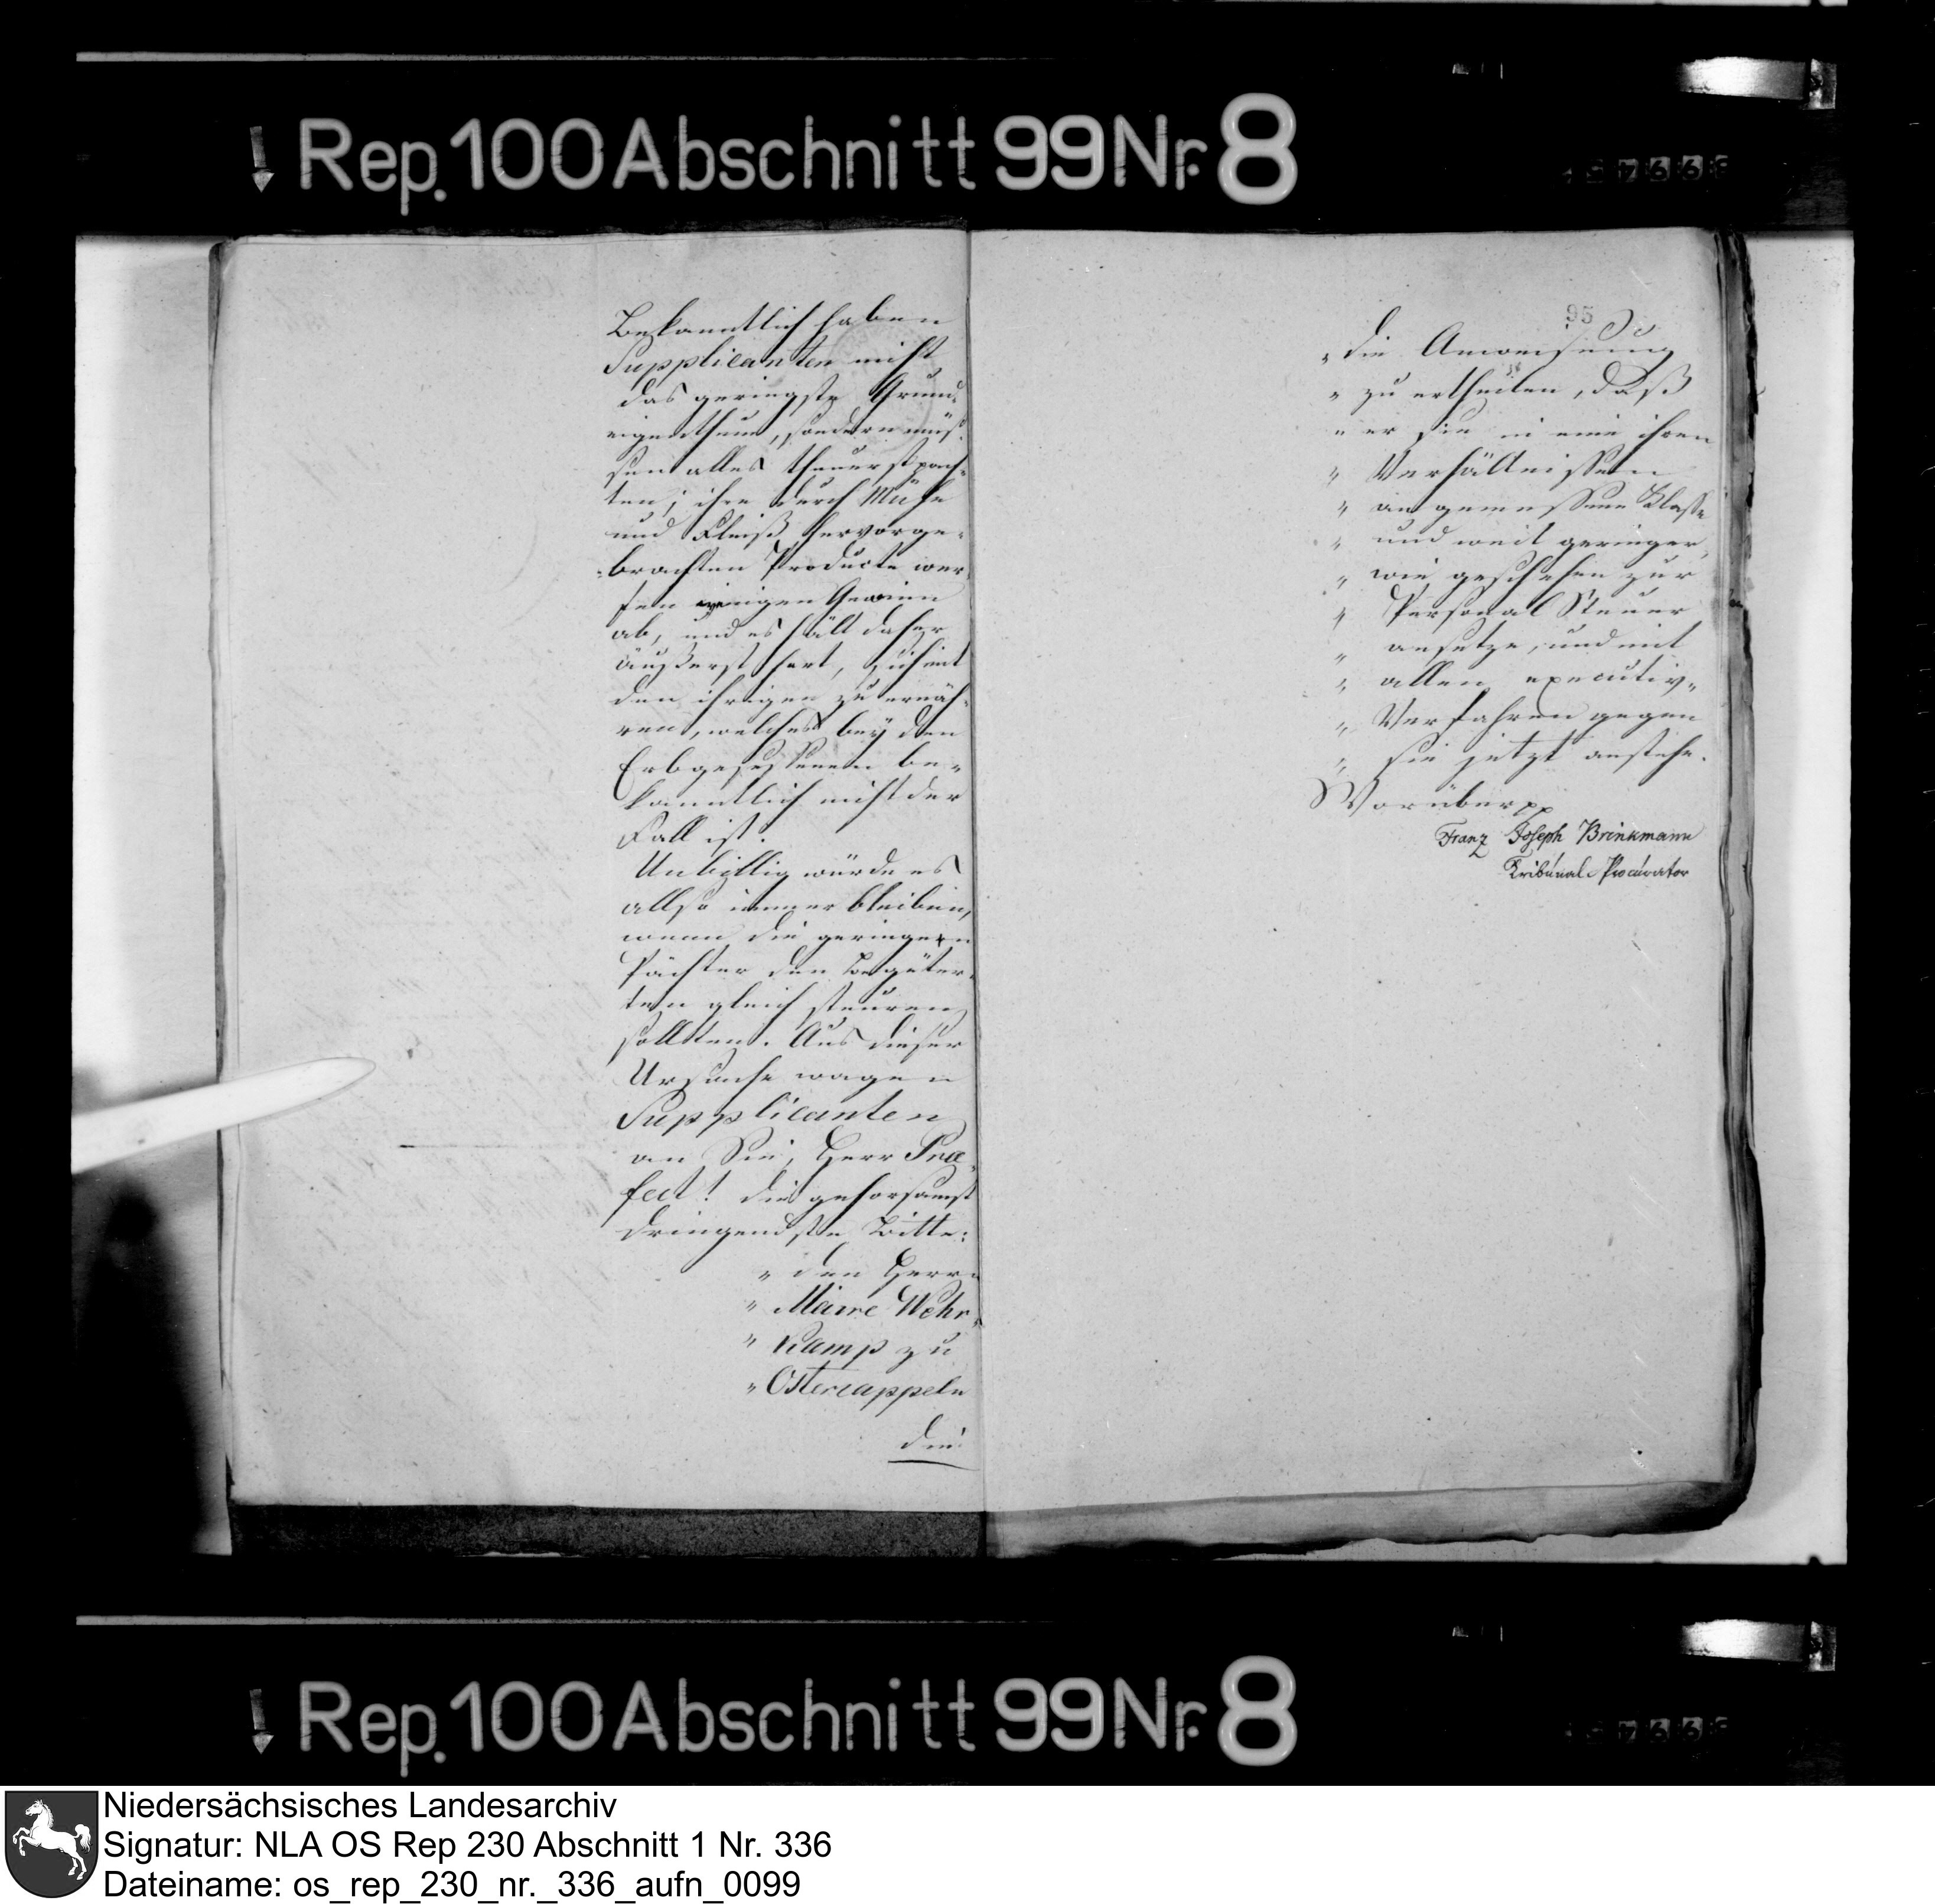 Rep. 100 Abschnitt 99 Nr. 8
Bekanntlich haben
Supplicanten nicht
das geringste Grund-
eigenthum, sondern müs-
sen alles theuerst pach-
ten; ihre durch Mühe
und Fleiß hervorge-
brachten Producte wer-
fen wenigen Gewinn
ab, und es hält daher
äußerst hart, sich mit
den ihrigen zu ernäh-
ren, welches bey den
Erbgesessenen be-
kanntlich nicht der
Fall ist.
Unbillig würde es
allso immer bleiben,
wenn die geringern
Pächter den Begüter-
ten gleich steuren
sollten. Aus dieser
Ursache wagen
Supplicanten
an Sie, Herr Prä-
fect! die gehorsamst
dringendste Bitte:
„ den Herrn
„ Maire Wehr-
„ Kamp zu
„ Ostercappeln
die
95
„ die Anweisung
„ zu ertheilen, daß
„ er sie in eine ihren
„ Verhältnissen
„ angemessene Klasse
„ und weit geringer,
„ wie geschehen zur
„ Personal Steuer
„ ansetze, und mit
„ allen executiv-
„ Verfahren gegen
„ sie jetzt anstehe.
Worüber pp
Franz Joseph Brinkmann
Tribunal Procurator
Rep. 100 Abschnitt 99 Nr. 8
Niedersächsisches Landesarchiv
Signatur: NLA OS Rep 230 Abschnitt 1 Nr. 336
Dateiname: os_rep_230_nr._336_aufn_0099